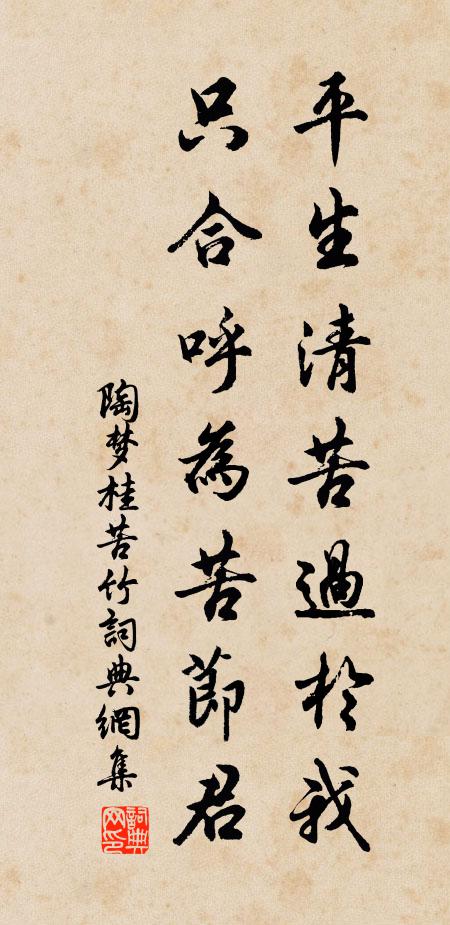 平生清苦過於我
只合呼為苦節君
陶梦桂苦竹詞典網集
詞典网印